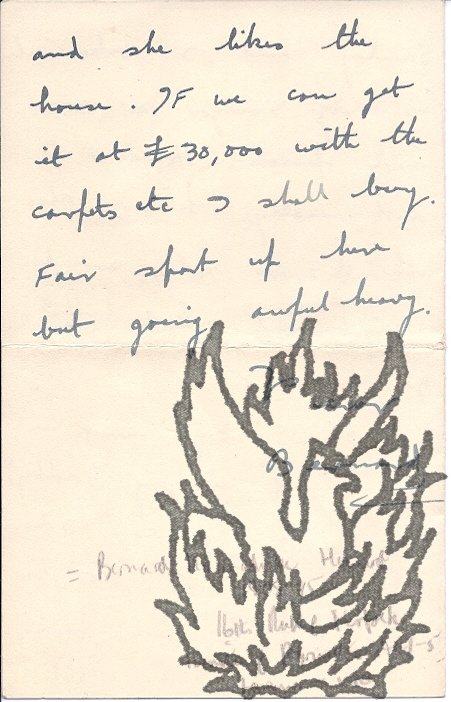 and she likes the
house. IF we can get
it at £30,000 with the
carpets etc I shall buy.
Fair sport up here
but going awful heavy.
Bernard
= Bernard
16th